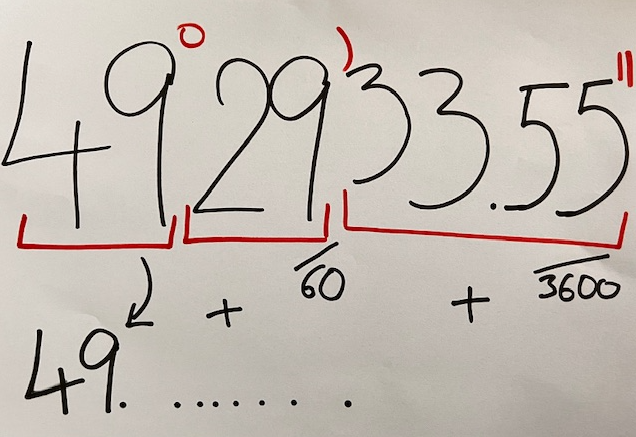 49° 29' 33.55"
+ /60 + /3600
49. ....... .